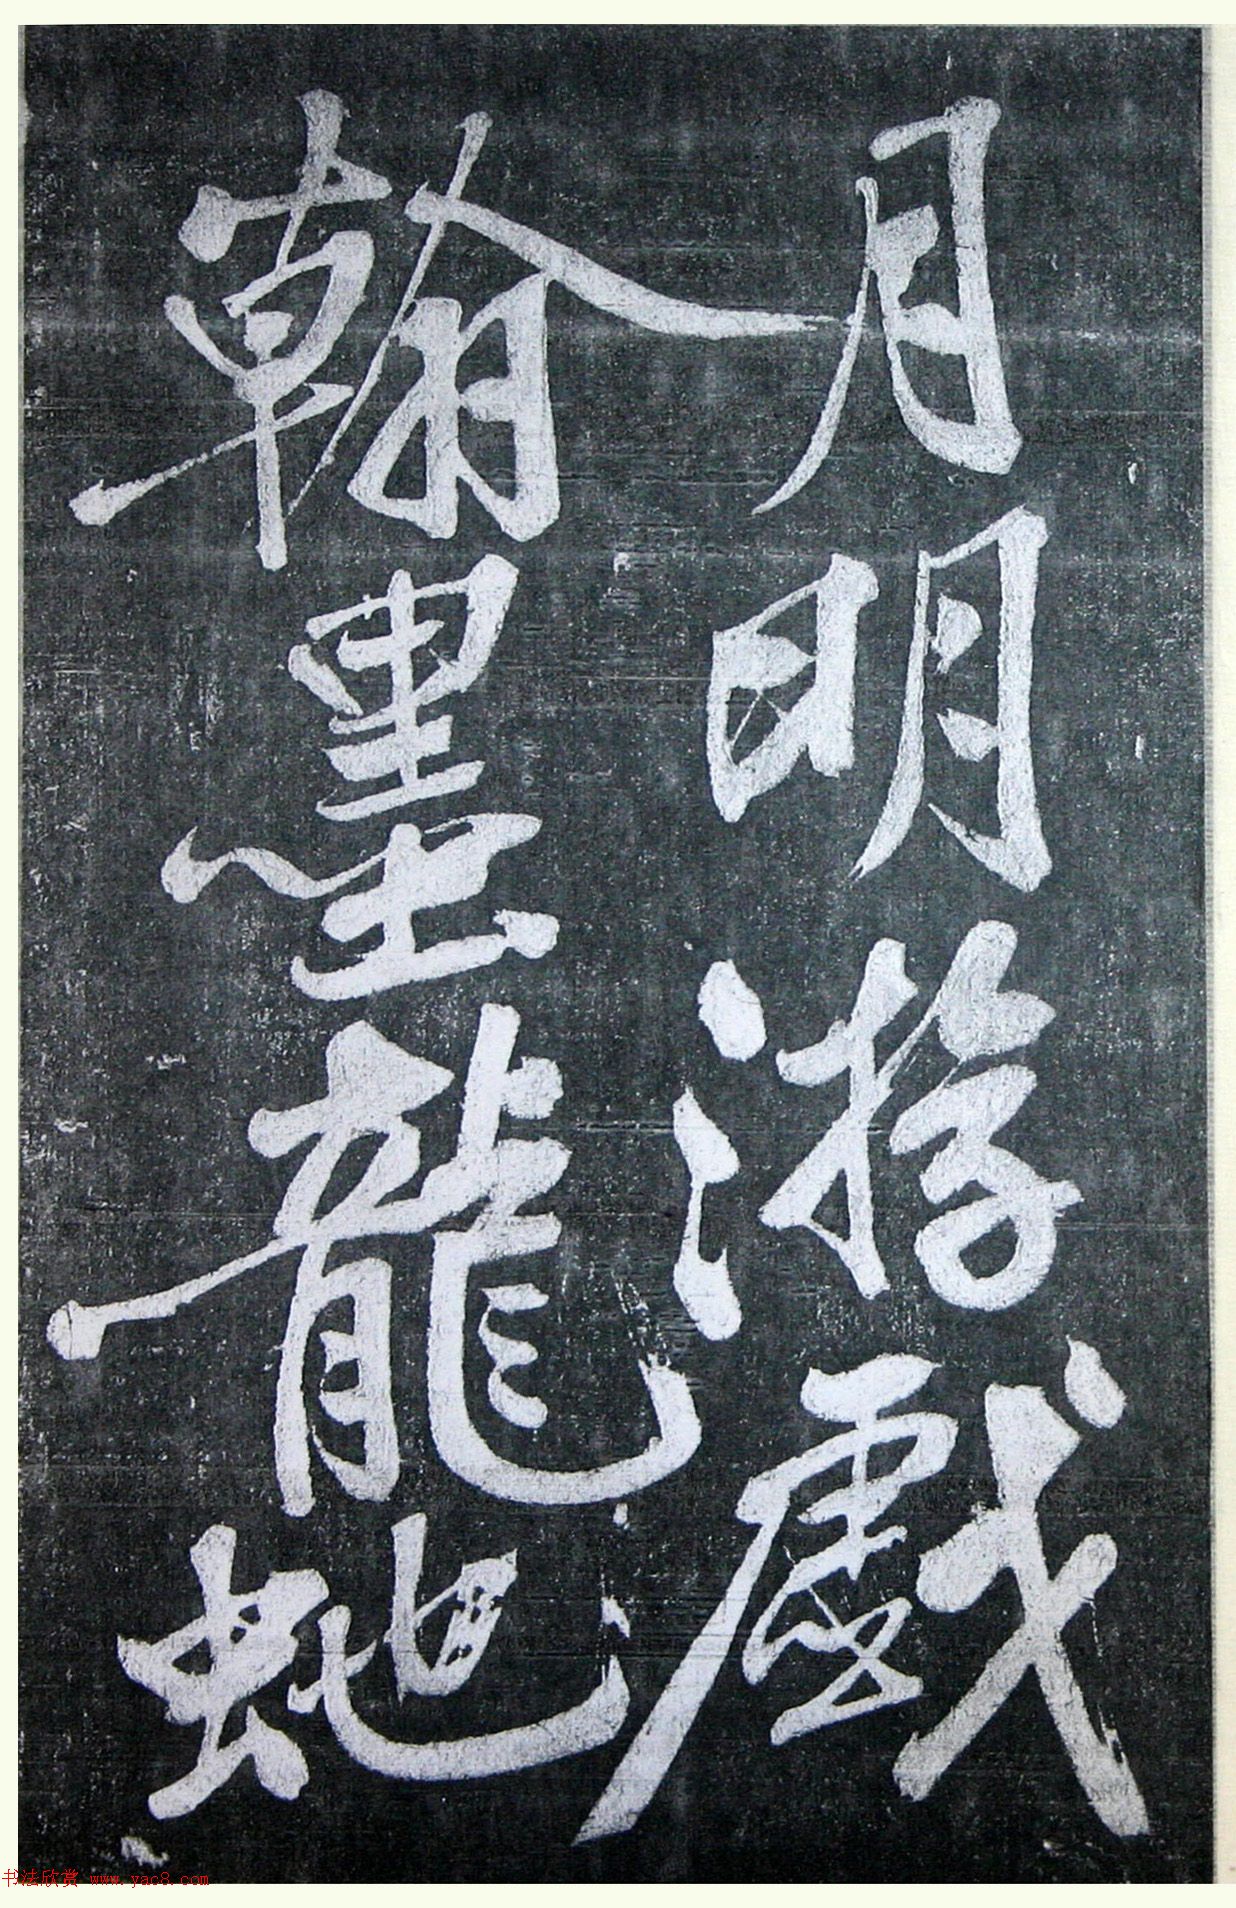 月明游戲
翰墨龍蛇
书法欣赏 www.yac8.com